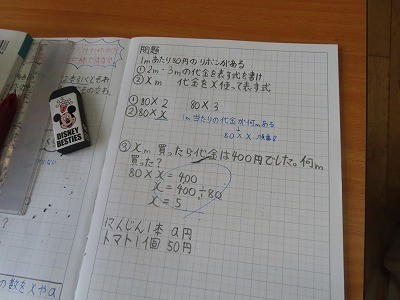 問題
1mあたり80円のリボンがある
①2m・3mの代金を表す式を書け
②xm 代金をxを使って表す式
①80×2 80×3
②80×x 1m当たりの代金が何mある
80×x
③xm買ったら代金は400円でした。何m
買った?
80×x=400
x=400÷80
x=5
にんじん1本 a円
トマト1個 50円
DISNEY
BESTIES
の数をxやa